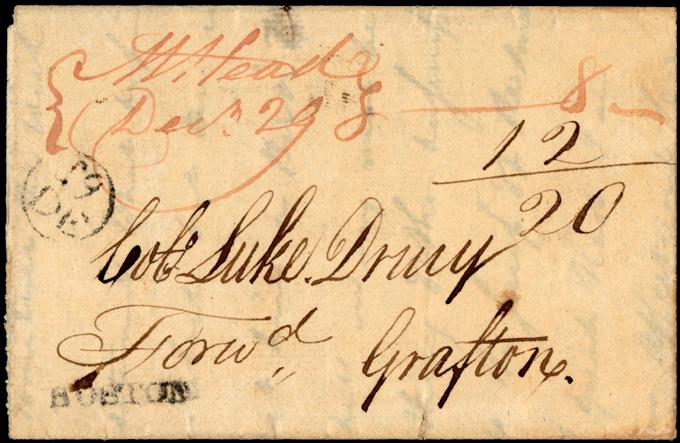 Mt. Head 8
Decr. 29
12
20
29
DE
Colo. Luke Drury
Forwd. Grafton.
BOSTON